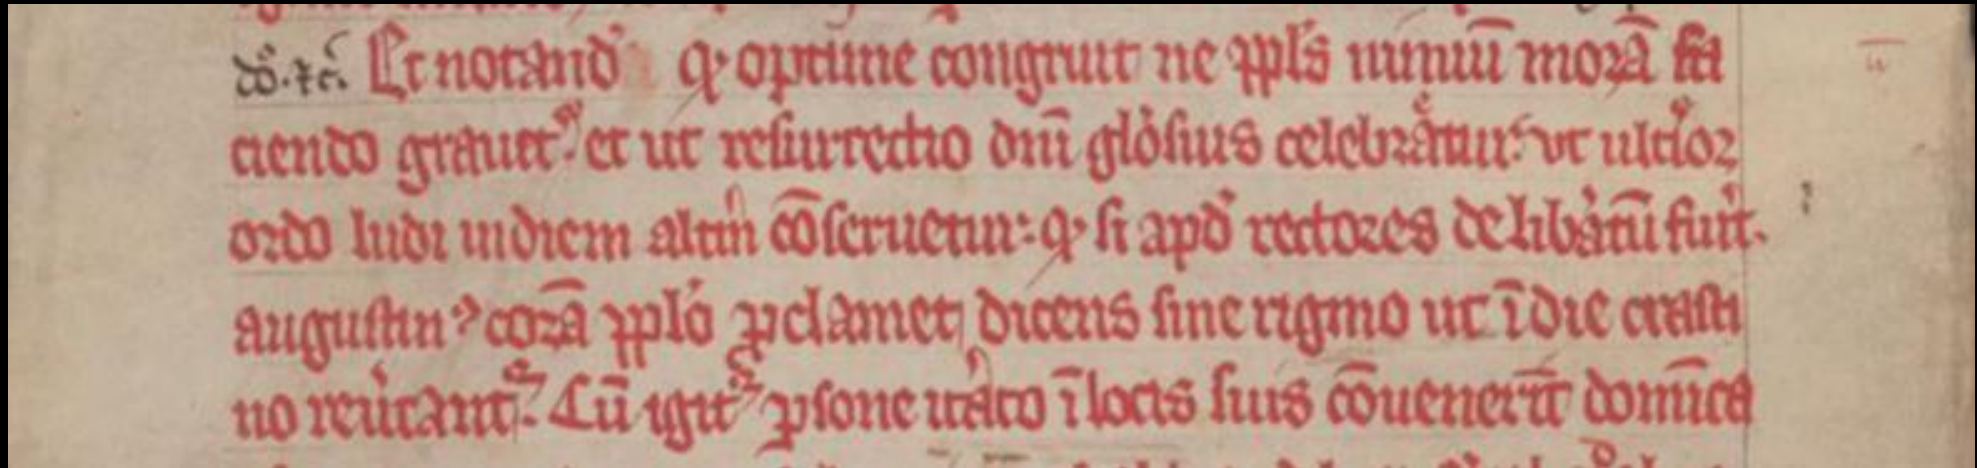 do᷒. ⁊c̃. Et notand᷒ qꝫ optime congruit ne ppl᷒s nimiū morā fa
ciendo grauet᷒ et ut resurrectio dnī glo᷒sius celebrat᷒ur. ut ulti᷒or
ordo ludi in diem altm᷒ cōseruetur: qꝫ si apd᷒ rectores delib᷒atū fuit᷒.
augustinꝰ corā ppl᷒o ꝓclamet dicens sine rigmo ut ī die crasti
no reu᷒tant᷒. Cū igit᷒ ꝑsone it᷒ato ī locis suis cōuenerīt domīca